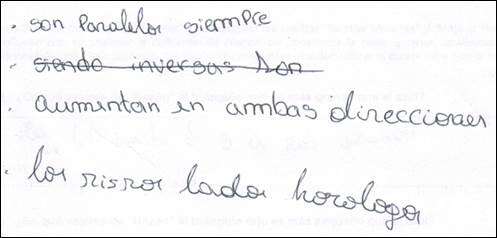 · son Paralelos siempre
· siendo inversas son
· aumentan en ambas direcciones
· los lados horologos